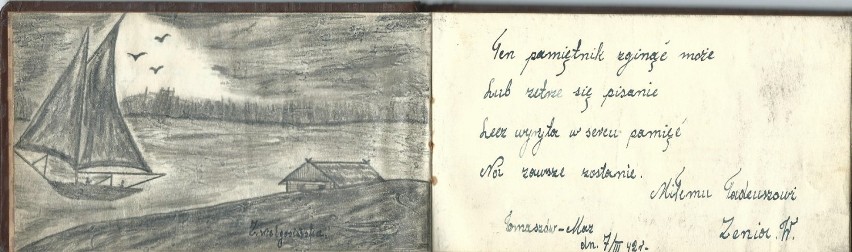 Ten pamiętnik zginąć może
Lub zetrze się pisanie
Lecz wyryta w sercu pamięć
Na zawsze zostanie.
Miłemu Tadeuszowi
Zenia W.
Tomaszów-Maz
dn. 7/III 42 r.